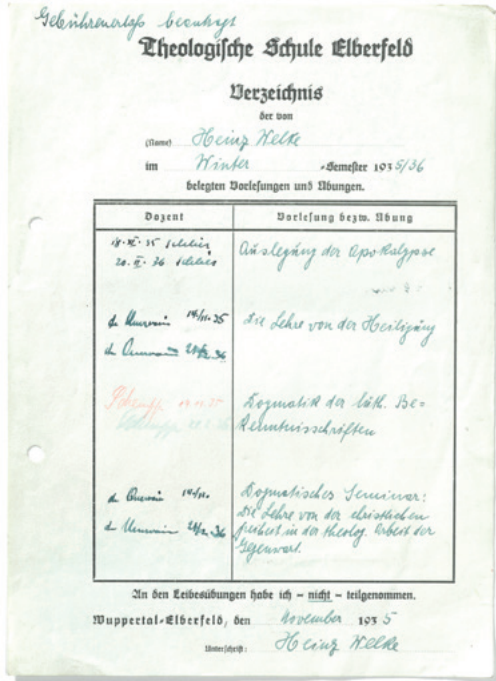 Gebührenerlass beantragt
Theologische Schule Elberfeld
Verzeichnis
der von
(Name) Heinz Welke
im Winter -Semester 1935/36
belegten Vorlesungen und Übungen.
Dozent Vorlesung bezw. Übung
18. XI. 35 Schlier Auslegung der Apokalypse
20. II. 36 Schlier
14/11. 35 Die Lehre von der Heiligung
36
19.11.35 Dogmatik der luth. Be-
kenntnisschriften
14/11. Dogmatisches Seminar:
Die Lehre von der christlichen
36 Freiheit in der theolog. Arbeit der
Gegenwart.
An den Leibesübungen habe ich – nicht – teilgenommen.
Wuppertal-Elberfeld, den November 1935
Unterschrift: Heinz Welke